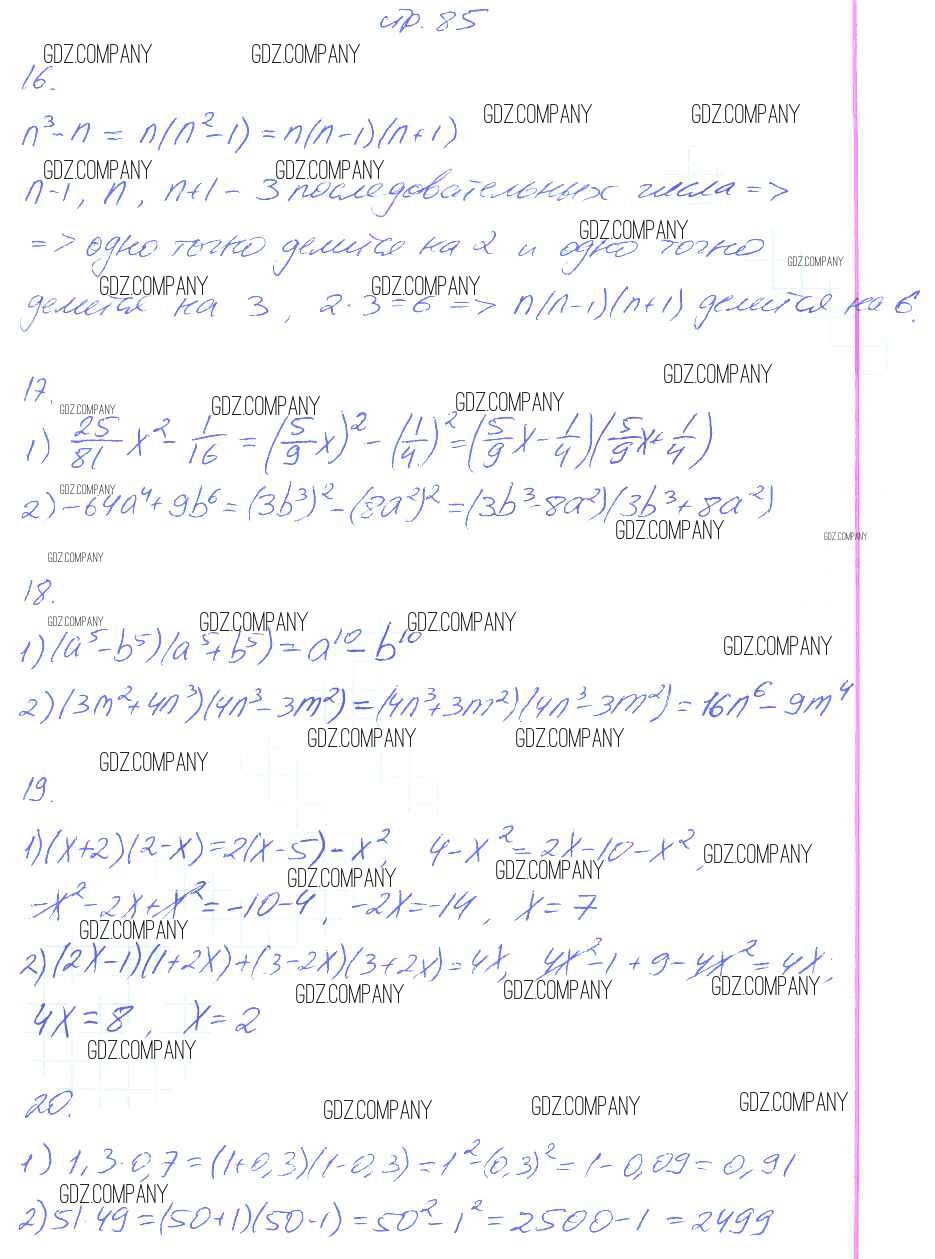 стр. 85
GDZ.COMPANY GDZ.COMPANY
16.
GDZ.COMPANY GDZ.COMPANY
n³-n = n(n²-1) = n(n-1)(n+1)
GDZ.COMPANY GDZ.COMPANY
n-1, n, n+1 - 3 последовательных числа =>
GDZ.COMPANY
=> одно точно делится на 2 и одно точно
GDZ.COMPANY
GDZ.COMPANY GDZ.COMPANY
делится на 3, 2·3=6 => n(n-1)(n+1) делится на 6.
GDZ.COMPANY
17.
GDZ.COMPANY GDZ.COMPANY GDZ.COMPANY
1) 25/81 x² - 1/16 = (5/9 x)² - (1/4)² = (5/9 x - 1/4)(5/9 x + 1/4)
GDZ.COMPANY
2) -64a⁴+9b⁶ = (3b³)²-(8a²)² = (3b³-8a²)(3b³+8a²)
GDZ.COMPANY GDZ.COMPANY
GDZ.COMPANY
18.
GDZ.COMPANY GDZ.COMPANY GDZ.COMPANY
1) (a⁵-b⁵)(a⁵+b⁵) = a¹⁰-b¹⁰
GDZ.COMPANY
2) (3m²+4n³)(4n³-3m²) = (4n³+3m²)(4n³-3m²) = 16n⁶-9m⁴
GDZ.COMPANY GDZ.COMPANY
GDZ.COMPANY
19.
1) (x+2)(2-x)=2(x-5)-x², 4-x²=2x-10-x²,
GDZ.COMPANY
GDZ.COMPANY GDZ.COMPANY
-x²-2x+x²=-10-4, -2x=-14, x=7
GDZ.COMPANY
2) (2x-1)(1+2x)+(3-2x)(3+2x)=4x, 4x²-1+9-4x²=4x;
GDZ.COMPANY GDZ.COMPANY GDZ.COMPANY
4x=8, x=2
GDZ.COMPANY
20.
GDZ.COMPANY GDZ.COMPANY GDZ.COMPANY
1) 1,3·0,7=(1+0,3)(1-0,3)=1²-(0,3)²=1-0,09=0,91
GDZ.COMPANY
2) 51·49=(50+1)(50-1)=50²-1²=2500-1=2499